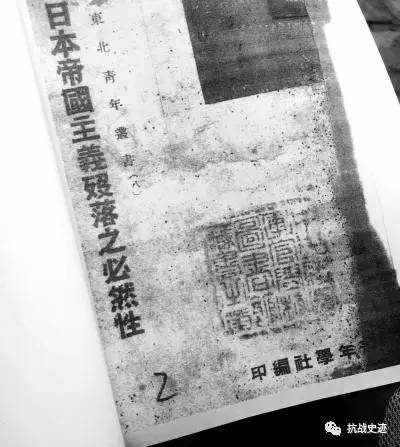 東北青年叢書(八)
日本帝國主義歿落之必然性
年學社編印
2
抗战史迹